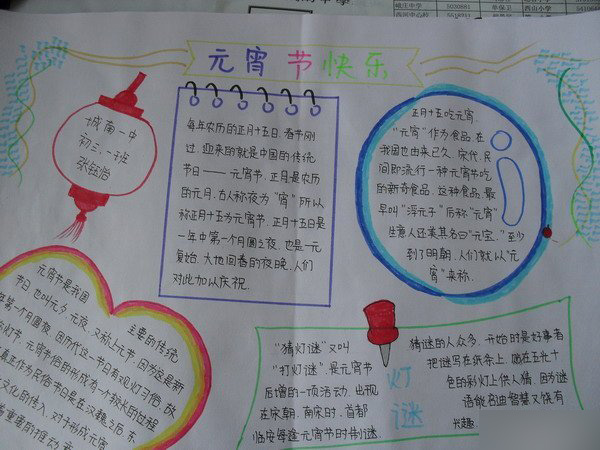 元宵节快乐
城南一中
初三、一班
每年农历的正月十五日.春节刚
过.迎来的就是中国的传统
节日——元宵节.正月是农历
的元月.古人称夜为“宵”所以
称正月十五为元宵节.正月十五日是
一年中第一个月圆之夜.也是一元
复始.大地回春的夜晚.人们
对此加以庆祝.
正月十五吃元宵.
“元宵”作为食品.在
我国也由来已久.宋代.民
间即流行一种元宵节吃
的新奇食品.这种食品.最
早叫“浮元子”后称“元宵”
生意人还美其名曰“元宝.”至少
到了明朝.人们就以“元
宵”来称.
元宵节是我国
主要的传统
节日.也叫元夕.元夜.又称上元节.因为这是新
年第一个月圆夜.因历代这一节日有观灯习俗.故
称灯节.元宵节俗的形成有一个较长的过程
真正作为民俗节日是在汉魏之后.东
文化的传入.对于形成元宵
重要的推动
“猜灯谜”又叫
“打灯谜”是元宵节
后增的一项活动.出现
在宋朝.南宋时.首都
临安每逢元宵节时制谜.
灯谜
猜谜的人众多.开始时是好事者
把谜写在纸条上.贴在五光十
色的彩灯上供人猜.因为谜
语能启迪智慧又饶有
兴趣